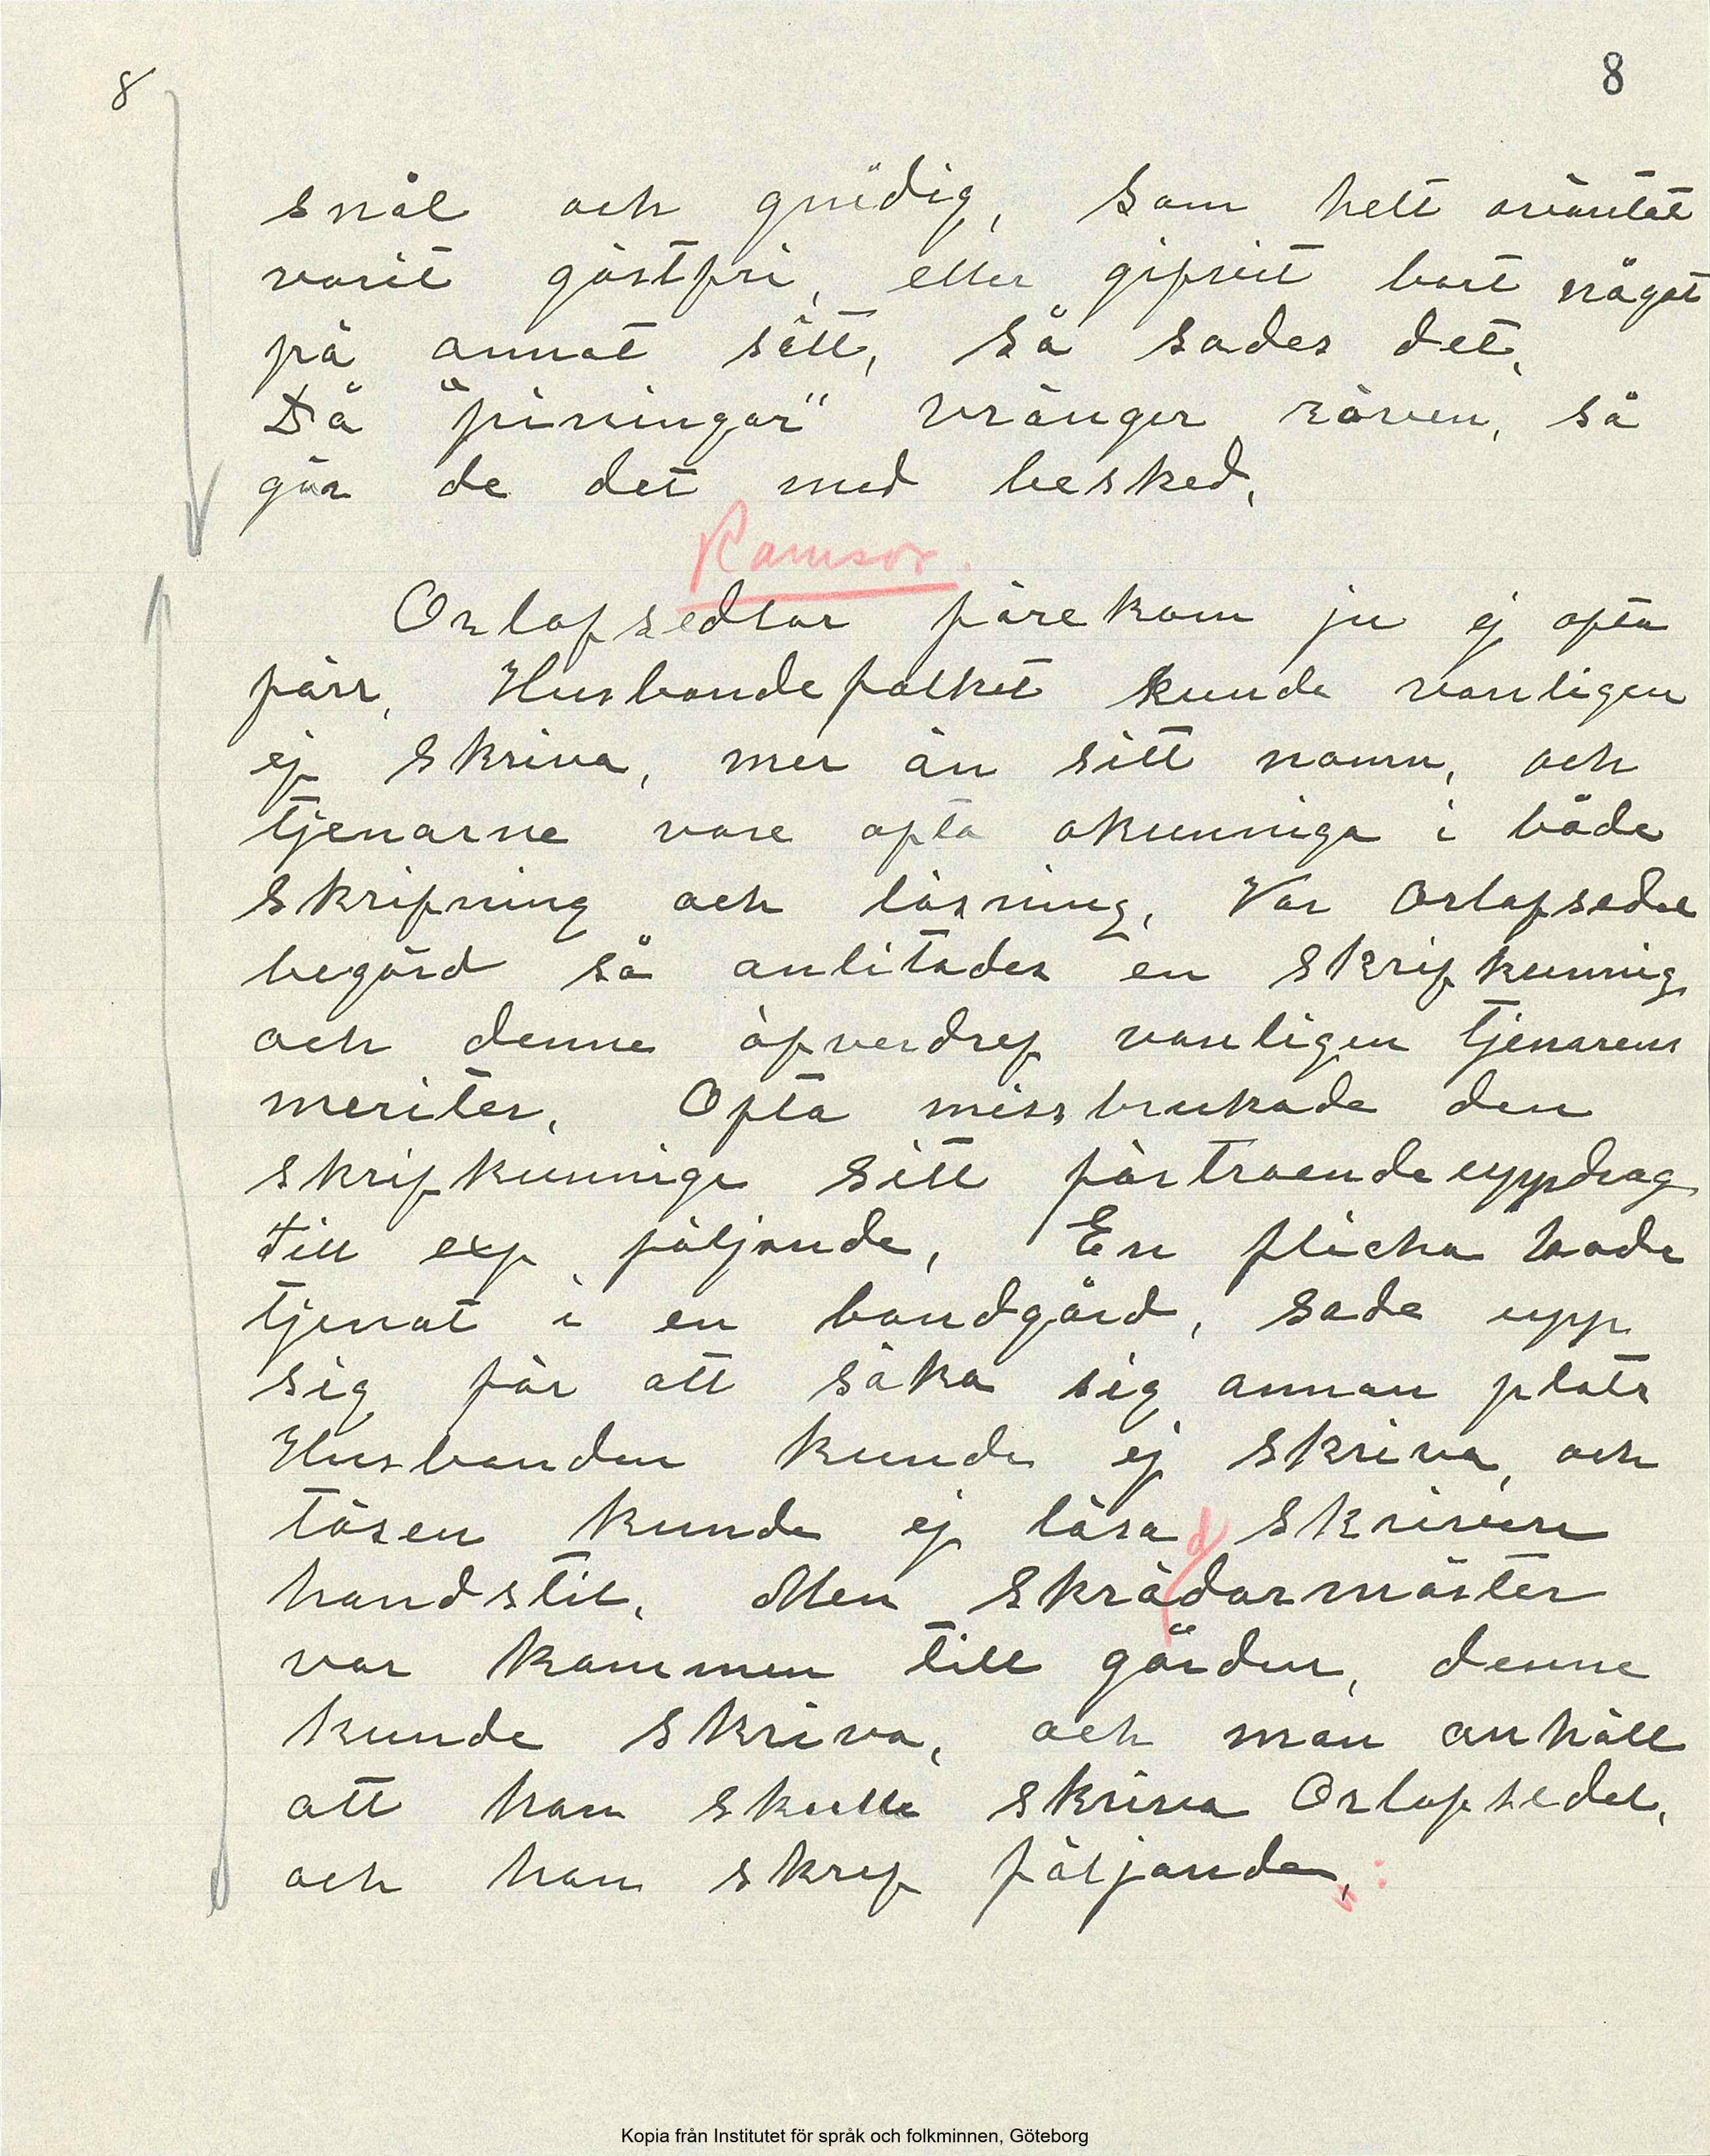 8
8
snål och gnidig, som helt oväntat
varit gästfri, eller gifvit bort något
på annat sätt, så sades det,
Då "piningar" vränger röven, så
gör de det med besked,
Ramsor.
Orlofsedlar förekom ju ej ofta
förr, Husbondefolket kunde vanligen
ej skriva, mer än sitt namn, och
tjenarne vore ofta okunniga i både
skrifning och läsning, Var Orlofsedel
begärd så anlitades en skrifkunnig
och denne öfverdref vanligen tjenarens
meriter, Ofta missbrukade den
skrifkunnige sitt förtroendeuppdrag
till exp följande, En flicka hade
tjenat i en bondgård, sade upp
sig för att söka sig annan plats
Husbonden kunde ej skriva, och
tösen kunde ej läsa skriven
handstil, Men skrädarmäster
d
var kommen till gården, denne
kunde skriva, och man anhöll
att han skulle skriva Orlofsedel,
och han skref följande, :
Kopia från Institutet för språk och folkminnen, Göteborg